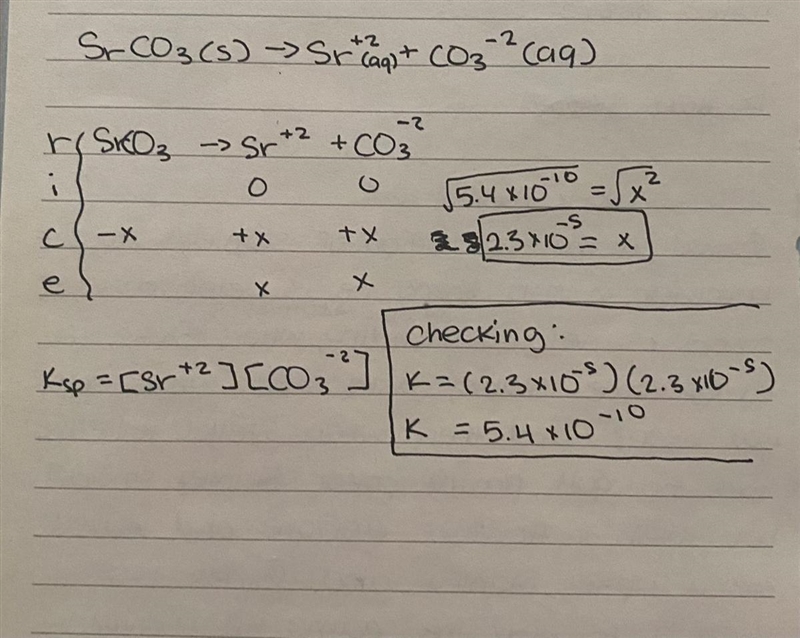 SrCO₃(s) → Sr⁺²(aq) + CO₃⁻²(aq)
r SrCO₃ → Sr⁺² + CO₃⁻²
i 0 0
c -x +x +x
e x x
√5.4×10⁻¹⁰ = √x²
2.3×10⁻⁵ = x
Ksp = [Sr⁺²][CO₃⁻²]
checking:
K = (2.3×10⁻⁵)(2.3×10⁻⁵)
K = 5.4×10⁻¹⁰